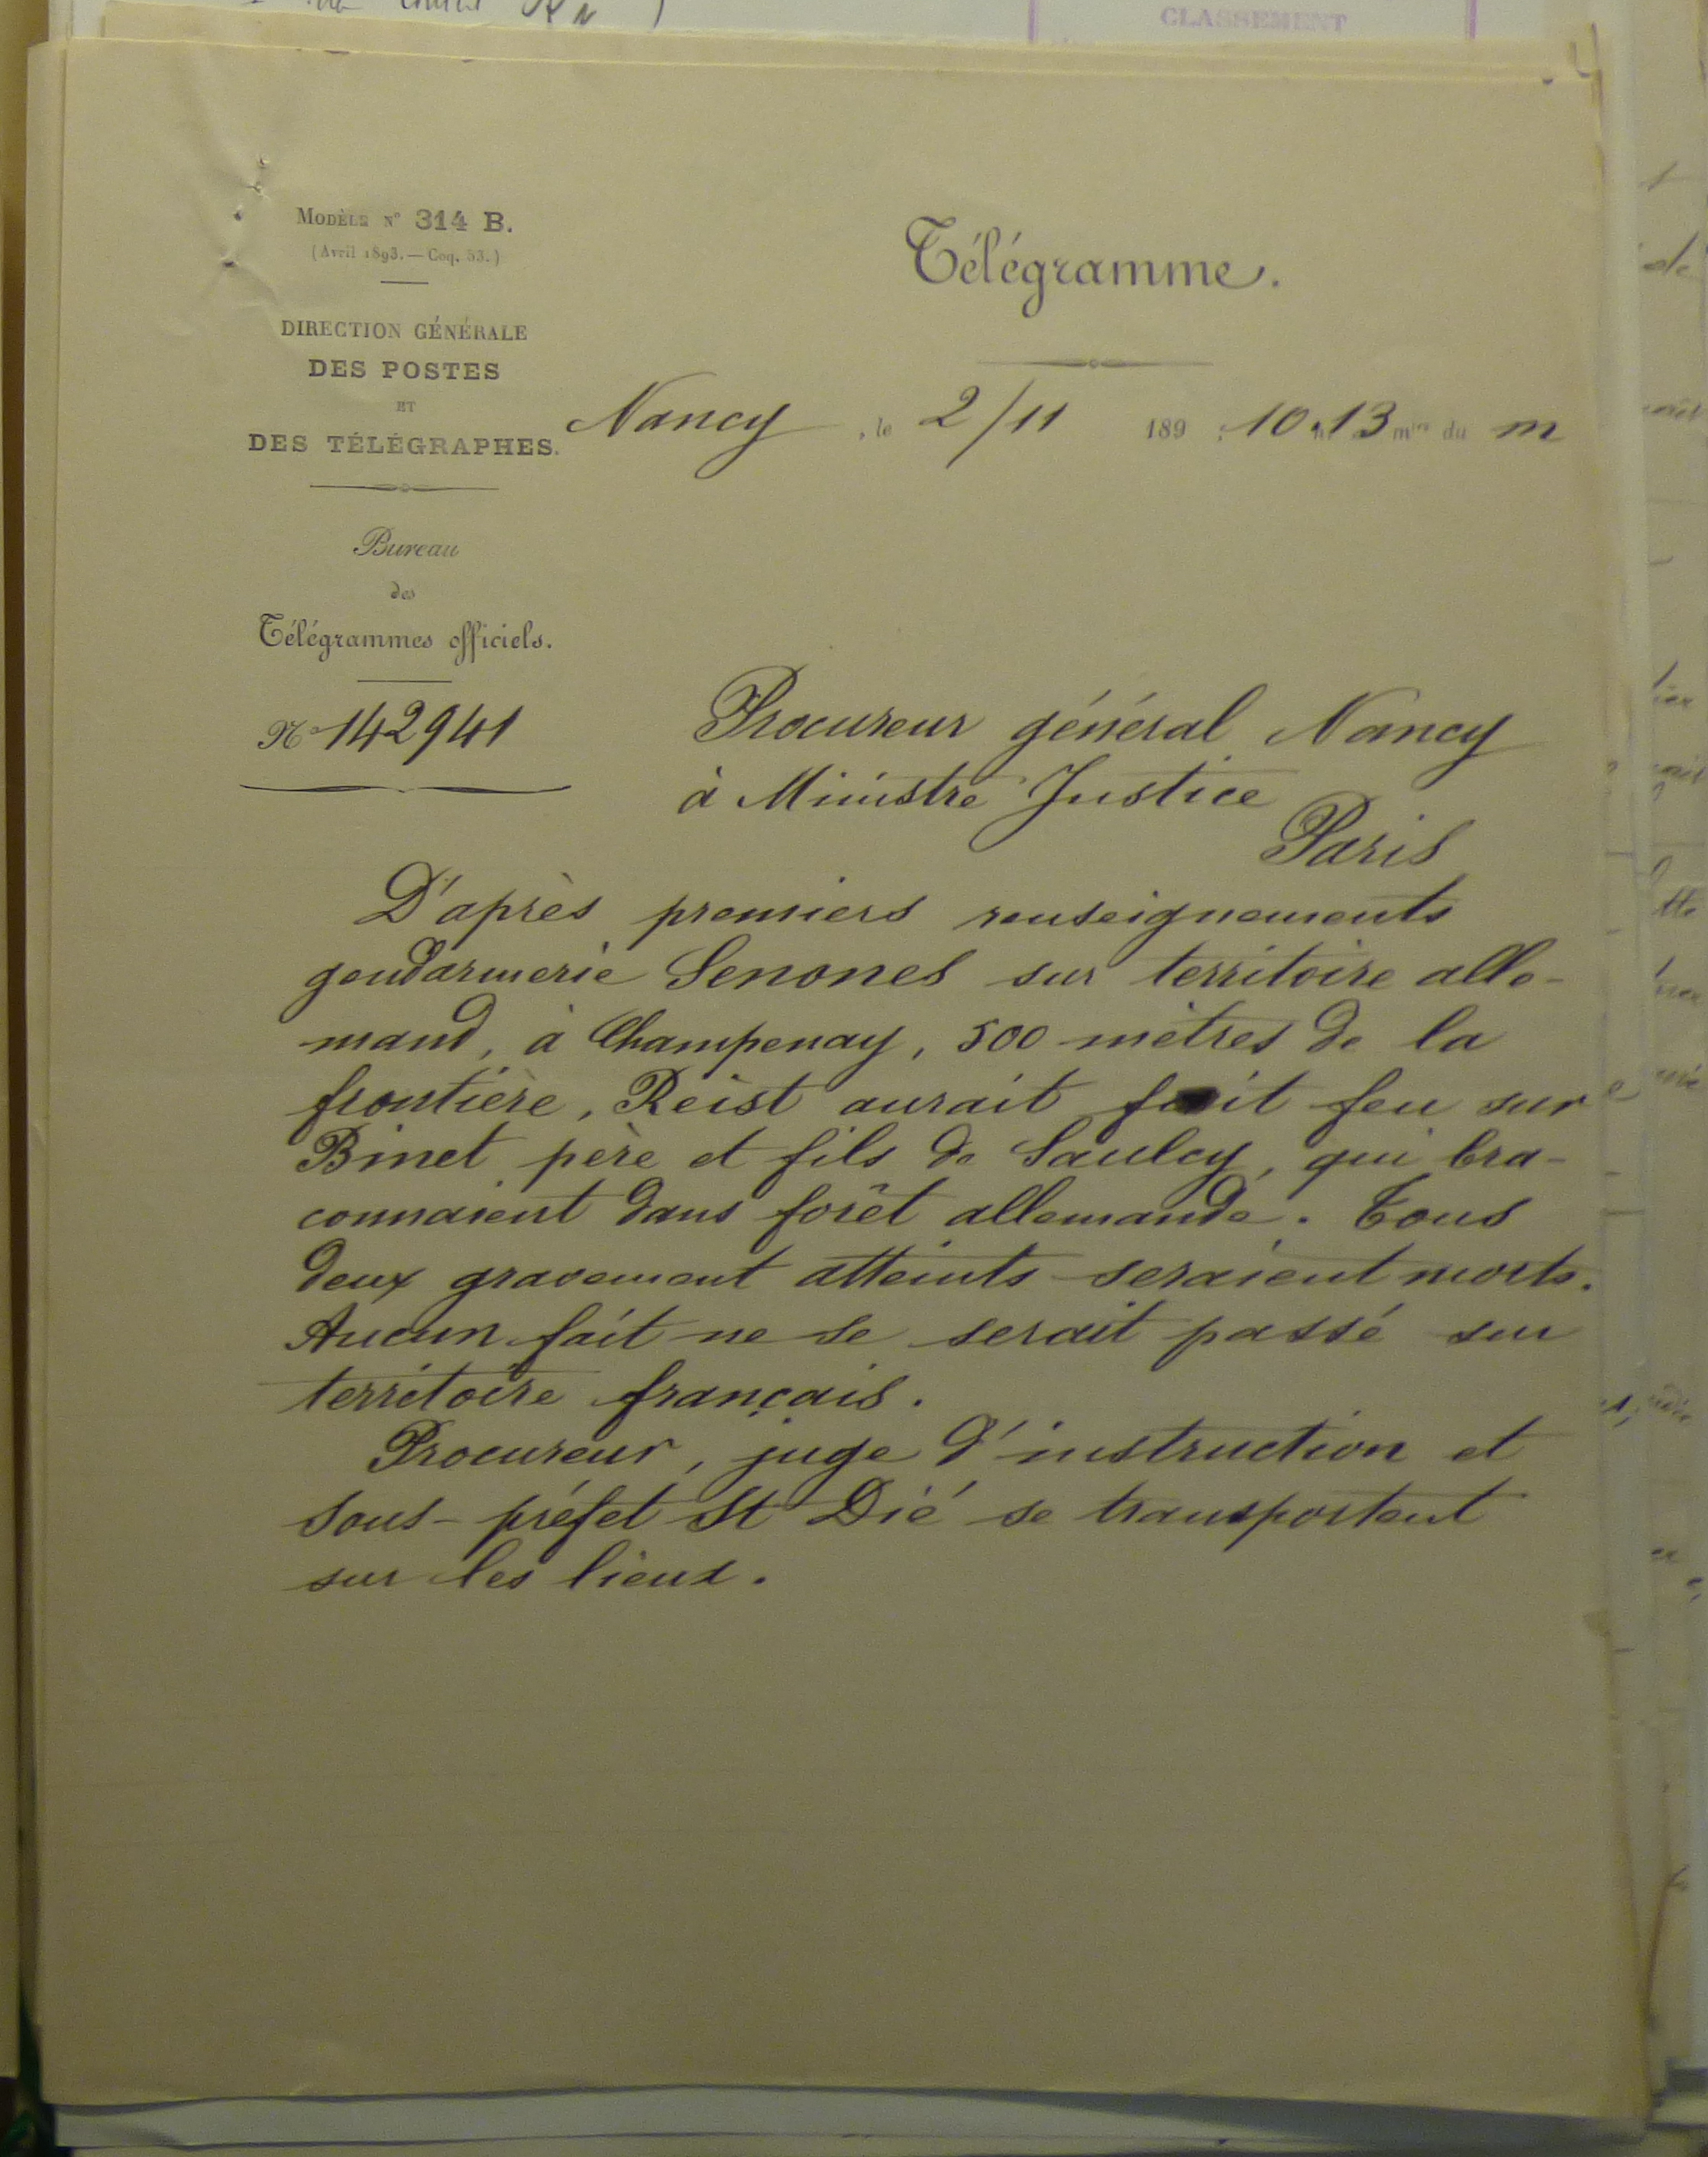 CLASSEMENT
MODÈLE N° 314 B.
(Avril 1893. — Coq. 53.)
DIRECTION GÉNÉRALE
DES POSTES
ET
DES TÉLÉGRAPHES.
Bureau
des
Télégrammes officiels.
N° 142941
Télégramme.
Nancy, le 2/11 189 , 10 h 13 min du m
Procureur général Nancy
à Ministre Justice
Paris
D'après premiers renseignements
gendarmerie Senones sur territoire alle-
mand, à Champenay, 500 mètres de la
frontière, Reist aurait fait feu sur
Binet père et fils de Saulcy, qui bra-
connaient dans forêt allemande. Tous
deux gravement atteints seraient morts.
Aucun fait ne se serait passé sur
territoire français.
Procureur, juge d'instruction et
Sous-préfet St Dié se transportent
sur les lieux.